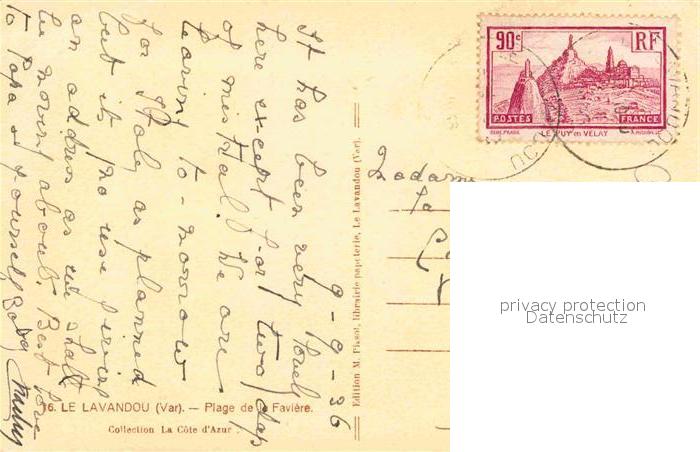 9-9-36
It has been very lovely
here except for two days
of mistral. We are
leaving to-morrow
for Italy as planned
but it no use giving
an address as we shall
be moving about. Best love
to Papa & yourself
90c RF
POSTES FRANCE
LE PUY en VELAY
Madame
Edition M. Pissot, librairie papeterie, Le Lavandou (Var).
16. LE LAVANDOU (Var). — Plage de la Favière.
Collection La Côte d'Azur
privacy protection
Datenschutz